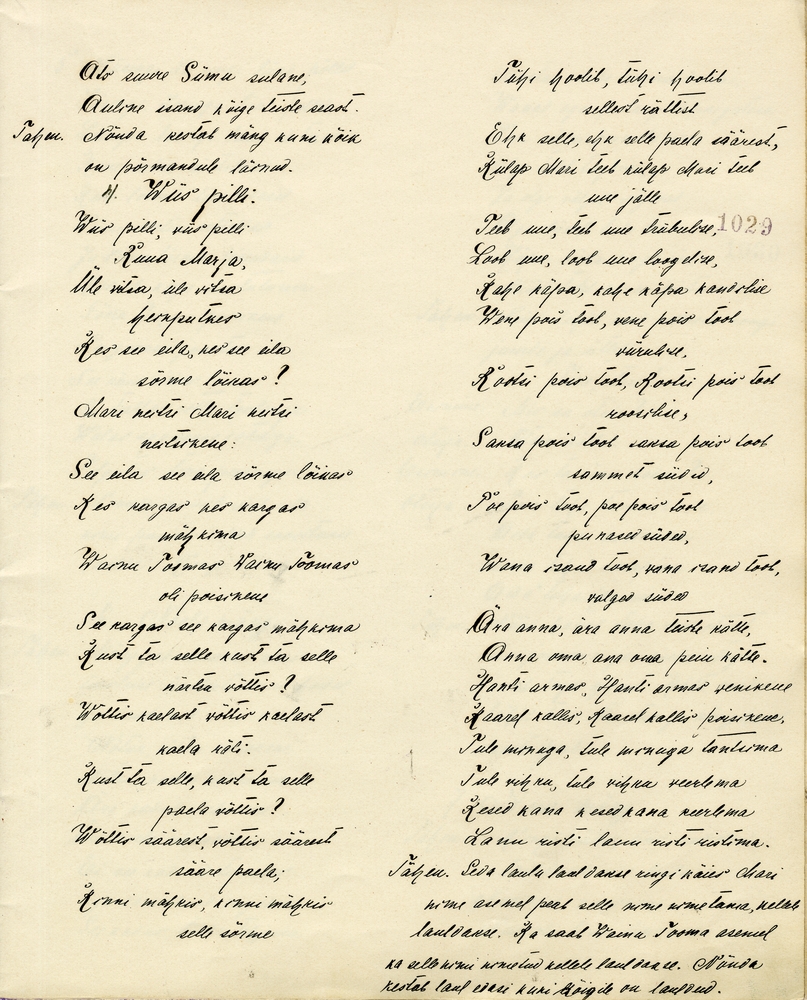 Ats suure Siimu sulane,
Auline isand kõige teiste seast.
Tähen. Nõnda kestab mäng kuni kõik
on põrmandule läinud.
4. Wiis pilli.
Wiis pilli, viis pilli
Ruua Marja,
Üle vitsa, üle vitsa
heinputkes
Kes see eila, kes see eila
sõrme lõikas?
Mari neitsi Mari neitsi
neitsikene:
See eila see eila sõrme lõikas
Kes kargas kes kargas
mähkima
Wainu Toomas Wainu Toomas
oli poisikene
See kargas see kargas mähkima
Kust ta selle kust ta selle
närtsu võttis?
Wõttis kaelast võttis kaelast
kaela räti.
Kust ta selle, kust ta selle
paela võttis?
Wõttis säärest, võttis säärest
sääre paela;
Kinni mähkis, kinni mähkis
selle sõrme
Tühi hoolib, tühi hoolib
sellest rättist
Ehk selle, ehk selle paela säärest,
Külap Mari teeb külap Mari teeb
uue jälle
Teeb uue, teeb uue triibulise,
1029
Loob uue, loob uue loogelise,
Kahe käpa, kahe käpa kandilise
Wene pois toob, vene pois toob
viirulise,
Rootsi pois toob, Rootsi pois toob
roosilise,
Saksa pois toob saksa pois toob
sammet siidid,
Poe pois toob, poe pois toob
punased siided,
Wana isand toob, vana isand toob,
valged siided
Ära anna, ära anna teiste kätte,
Anna oma ana oma peiu kätte.
Hanti armas, Hanti armas venikene
Kaarel kallis, Kaarel kallis poisikene,
Tule minuga, tule minuga tantsima
Tule vihku, tule vihku veerlema
Kesed kana kesed kana keerlema
Lanu risti lanu risti ristima.
Tähen. Seda laulu lauldakse ringi käies Mari
nime asemel peab selle nime nimetama, kellele
lauldakse. Ka saab Wainu Tooma asemel
ka selle nimi nimetud kellele lauldakse. Nõnda
kestab laul edasi kuni kõigile on lauldud.